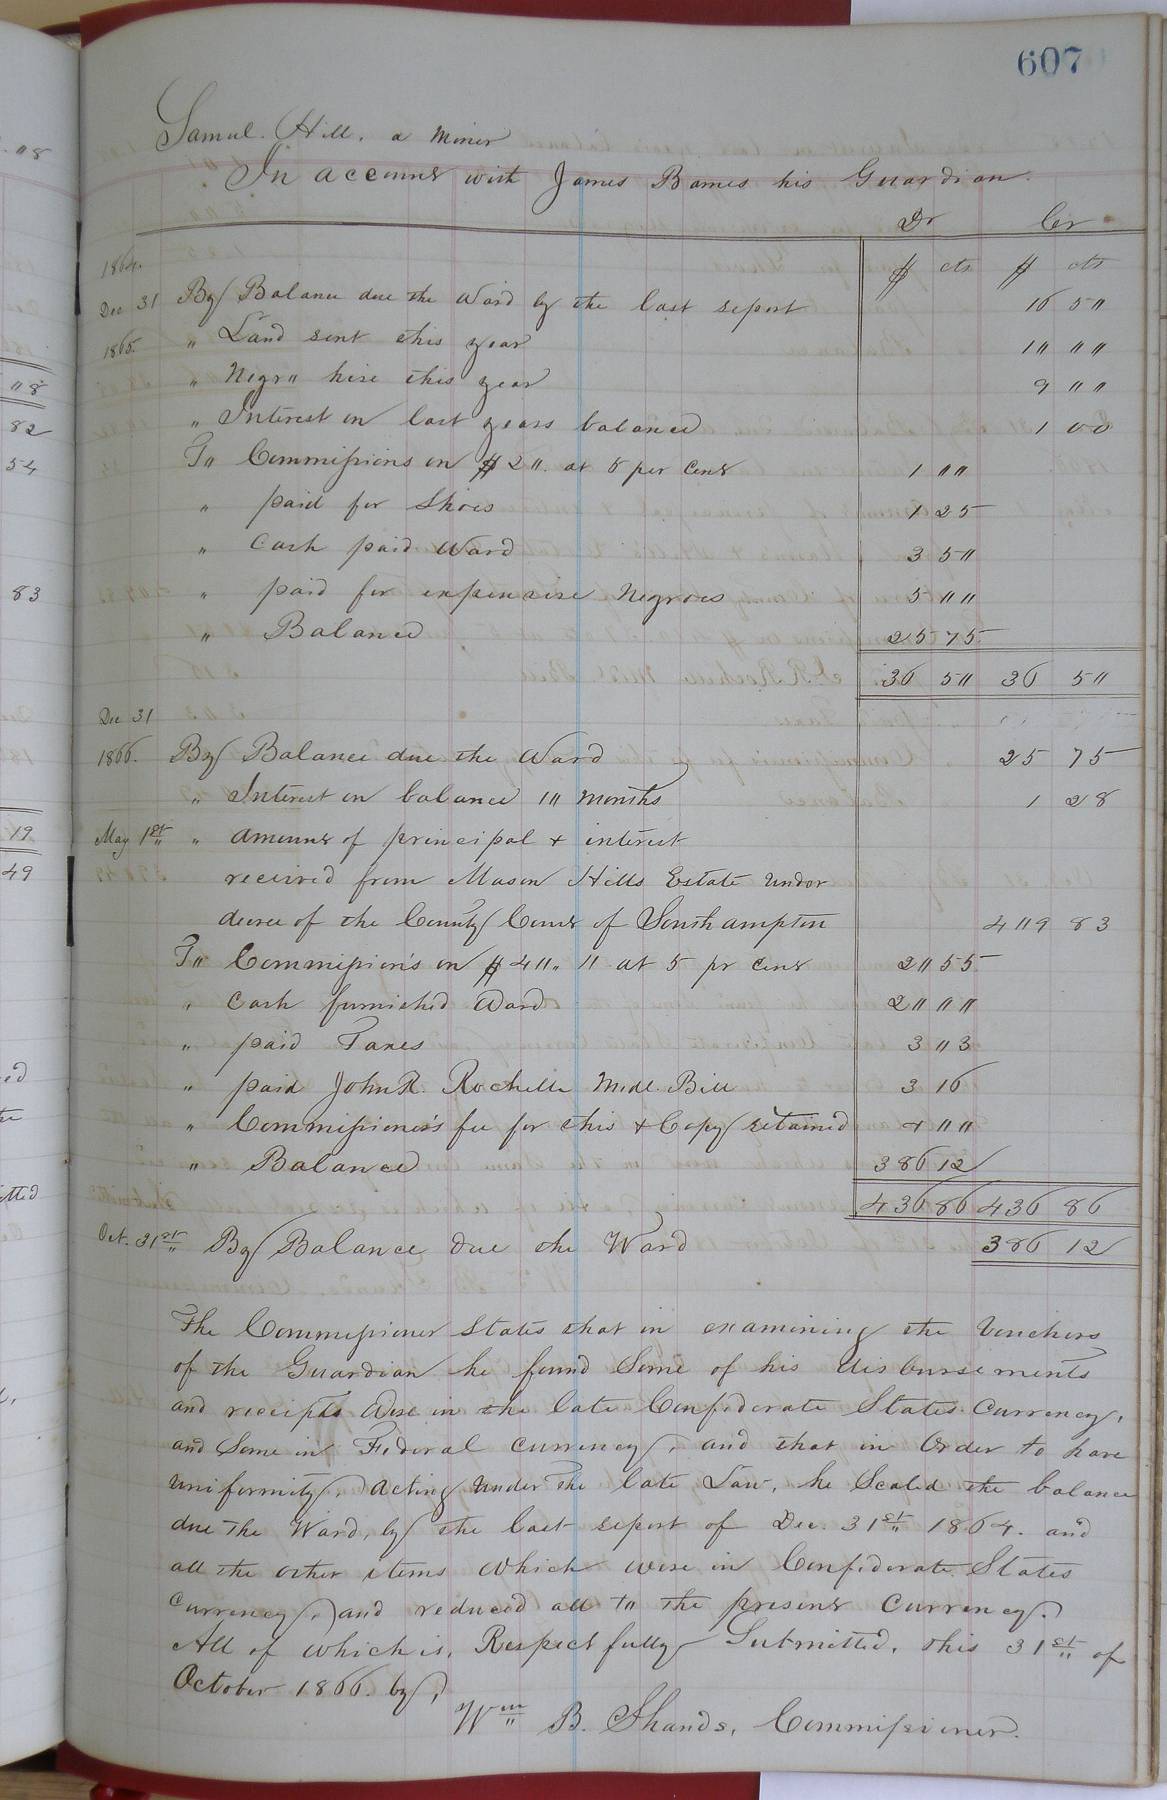 607
Samul. Hill. a Minor
In account with James Barnes his Guardian.
Dr Cr
1864. $ cts $ cts
Dec 31 By Balance due the Ward by the last report 16 5"
1865. " Land rent this year 1" ""
" Negro hire this year 9 ""
" Interest on last years balance 1 00
To Commissions on $2". at 5 per Cent 1 ""
" paid for Shoes 1 25
" Cash paid Ward 3 5"
" paid for expensive Negroes 5 ""
" Balance 25 75
36 5" 36 5"
Dec 31
1866. By Balance due the Ward 25 75
" Interest on balance 1" Months 1 28
May 1st " amount of principal & interest
received from Mason Hills Estate under
decree of the County Court of Southampton 4"9 83
To Commission's on $4"." at 5 pr Cent 2" 55
" Cash furnished Ward 2" ""
" paid Taxes 3 "3
" paid John R. Rochelle Medl. Bill 3 16
" Commissioner's fee for this & Copy retained 4 ""
" Balance 386 12
436 86 436 86
Oct. 31st By Balance due the Ward 386 12
The Commissioner States that in examining the Vouchers
of the Guardian he found Some of his disbursements
and receipts Were in the late Confederate States Currency,
and Some in Federal Currency, and that in Order to have
uniformity, acting under the late Law, he Scaled the balance
due the Ward, by the last report of Dec. 31st 1864. and
all the other items which were in Confederate States
Currency, and reduced all to the present Currency.
All of which is, Respectfully Submitted, this 31st of
October 1866. by,
Wm B. Shands, Commissioner.